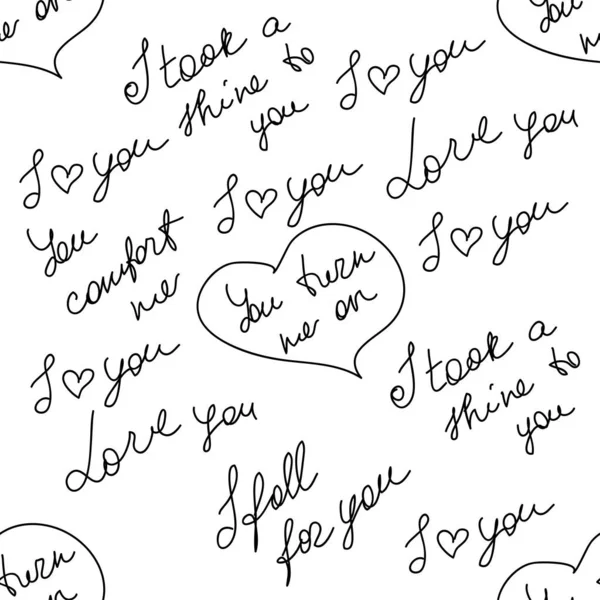 me on
You
me
I took a
shine to
you
I ♡ you
I ♡ you
Love you
I ♡ you
You
comfort
me
I ♡ you
You turn
me on
I ♡ you
I took a
shine to
you
Love you
I fall
for you
I ♡ you
turn
on
You
me